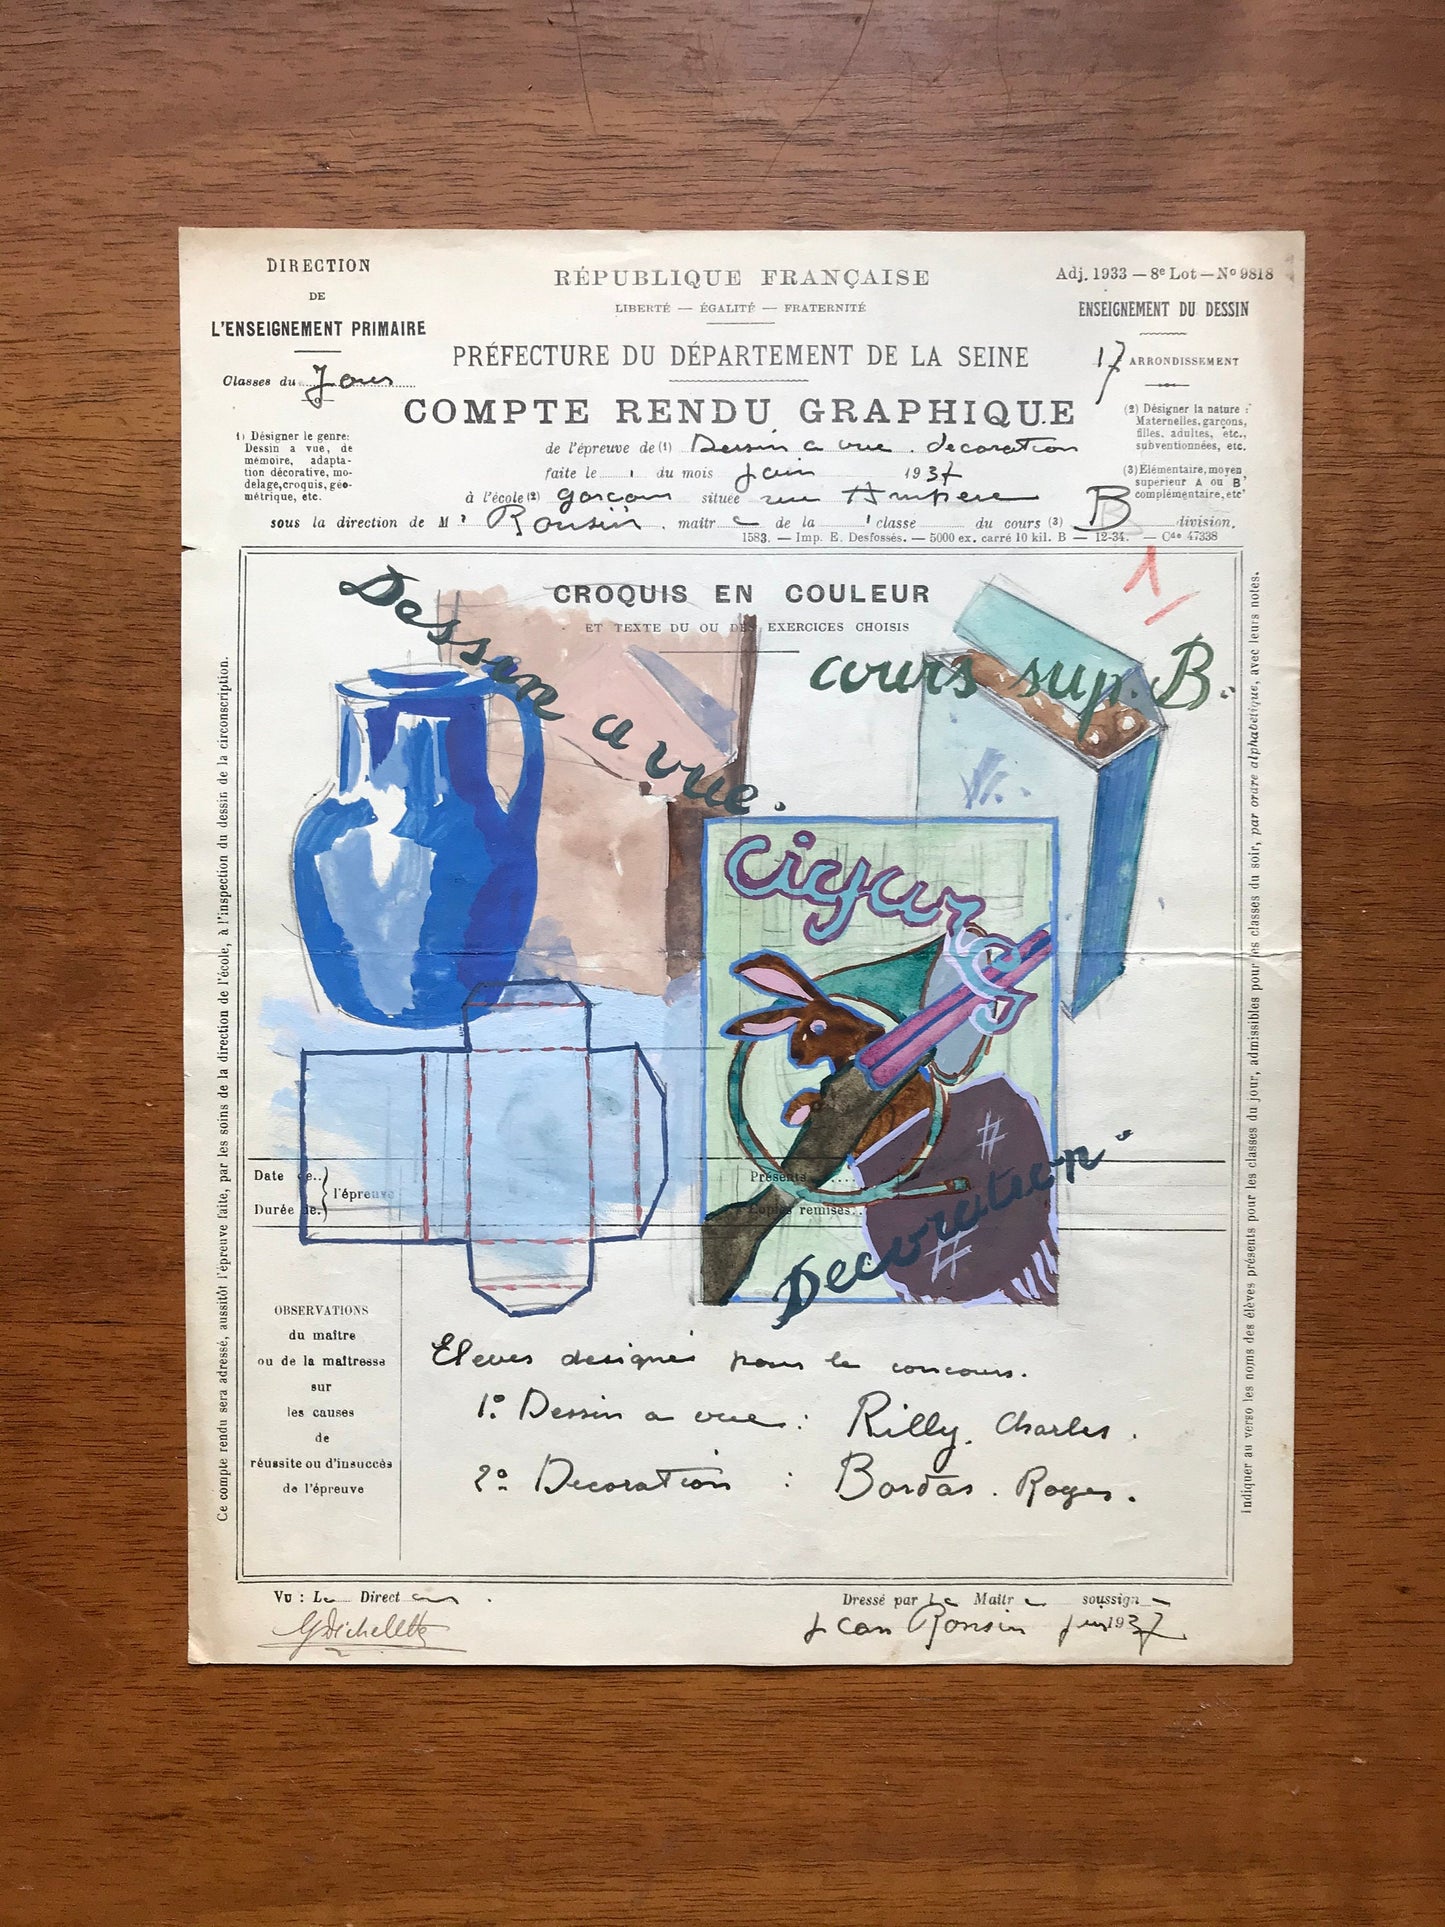 DIRECTION
DE
L'ENSEIGNEMENT PRIMAIRE
Classes du Jour
RÉPUBLIQUE FRANÇAISE
LIBERTÉ — ÉGALITÉ — FRATERNITÉ
PRÉFECTURE DU DÉPARTEMENT DE LA SEINE
Adj. 1933 — 8e Lot — No 9818
ENSEIGNEMENT DU DESSIN
17 ARRONDISSEMENT
COMPTE RENDU GRAPHIQUE
1) Désigner le genre:
Dessin a vue, de
mémoire, adapta-
tion décorative, mo-
delage, croquis, géo-
métrique, etc.
(2) Désigner la nature :
Maternelles, garçons,
filles, adultes, etc.,
subventionnées, etc.
(3) Élémentaire, moyen
supérieur A ou B
complémentaire, etc
de l'épreuve de (1) Dessin a vue. decoration
faite le du mois juin 1937
à l'école (2) garçons située rue Ampere
sous la direction de Mr Ronsin. maitre de la 1 classe du cours (3) B division.
1583. — Imp. E. Desfossés. — 5000 ex. carré 10 kil. B — 12-34. — Cde 47338
CROQUIS EN COULEUR
ET TEXTE DU OU DES EXERCICES CHOISIS
Dessin a vue.
cours sup. B.
cigars
Decoration.
Date de..
Durée de.
l'épreuve
Présents.....
Copies remises..
OBSERVATIONS
du maître
ou de la maîtresse
sur
les causes
de
réussite ou d'insuccès
de l'épreuve
Eleves designés pour le concours.
1º Dessin a vue : Rilly. Charles.
2º Decoration : Bordas. Roger.
Vu : Le Directeur.
Dressé par le Maitre soussigné
Jean Ronsin juin 1937
Ce compte rendu sera adressé, aussitôt l'épreuve faite, par les soins de la direction de l'école, à l'inspection du dessin de la circonscription.
Indiquer au verso les noms des élèves présents pour les classes du jour, admissibles pour les classes du soir, par ordre alphabétique, avec leurs notes.